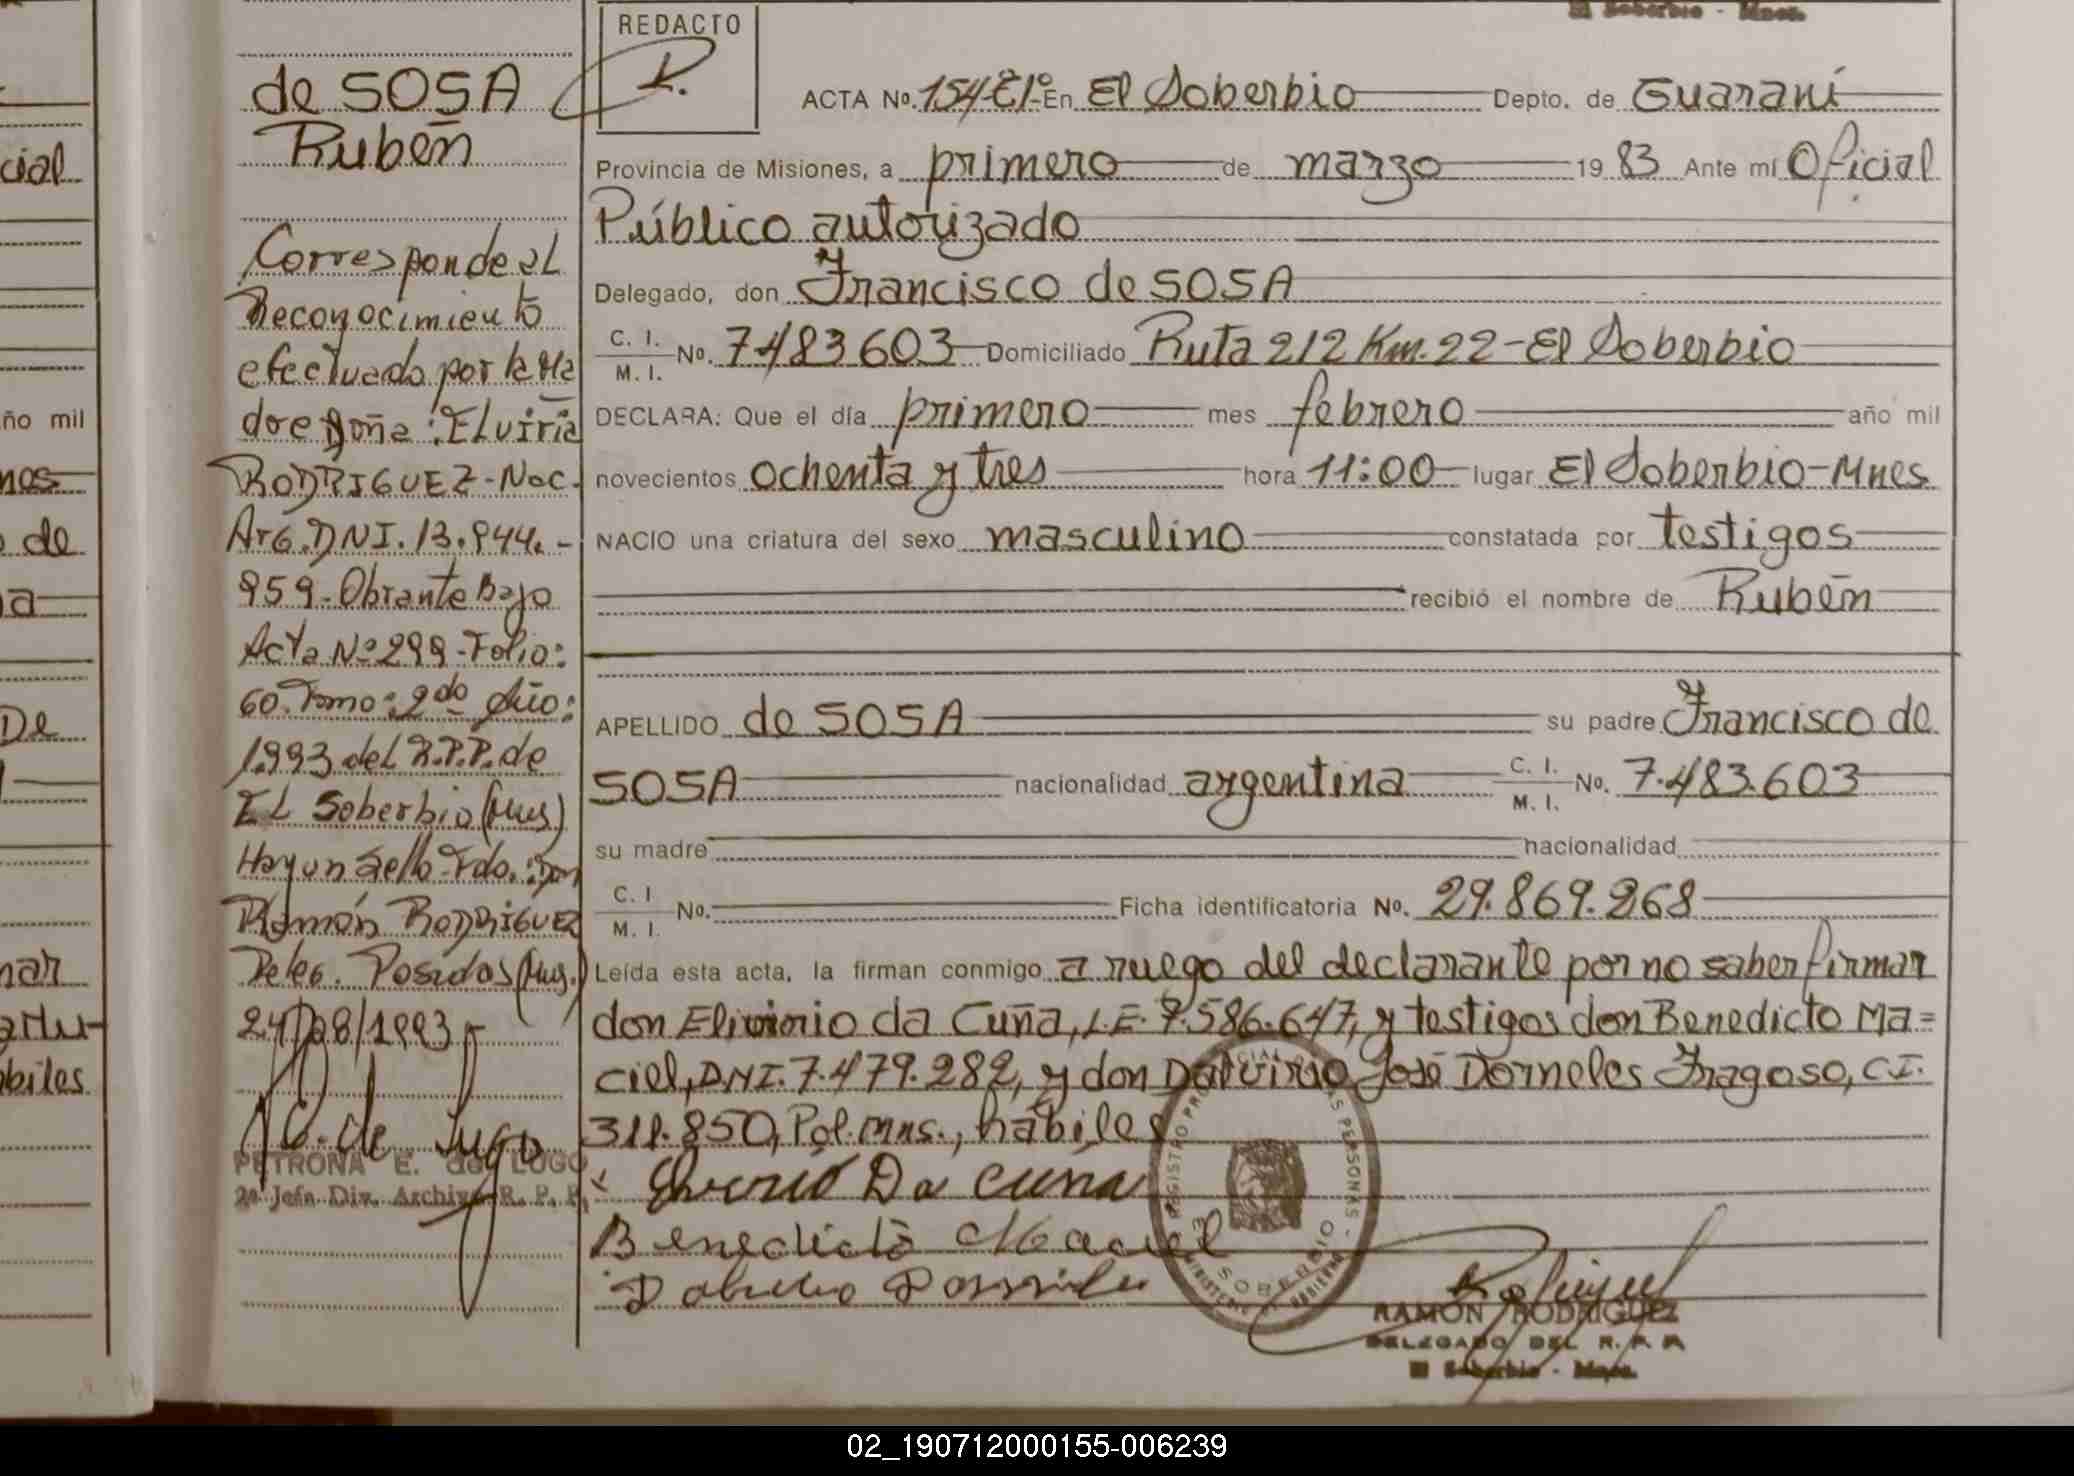 El Soberbio - Mnes.
REDACTO
de SOSA
Rubén
ACTA No. 154-E1º- En El Soberbio Depto. de Guaraní
Provincia de Misiones, a primero de marzo 19 83 Ante mí Oficial
Público autorizado
Delegado, don Francisco de SOSA
C. I.
M. I.
No. 7483603 Domiciliado Ruta 212 Km. 22-El Soberbio
DECLARA: Que el día primero mes febrero año mil
novecientos ochenta y tres hora 11:00 lugar El Soberbio-Mnes
NACIO una criatura del sexo masculino constatada por testigos
recibió el nombre de Rubén
APELLIDO de SOSA su padre Francisco de
SOSA nacionalidad argentina C. I. M. I. No. 7.483.603
su madre nacionalidad
C. I.
M. I.
No. Ficha identificatoria No. 29.869.268
Leída esta acta, la firman conmigo a ruego del declarante por no saber firmar
don Elivinio da Cuña, L.E. 7.586.647, y testigos don Benedicto Ma=
ciel, DNI. 7.479.282, y don Dalvirio José Dorneles Fragoso, C.I.
311.850, Pol. Mns., hábiles
Da Cuña
Benedicto Maciel
RAMON RODRIGUEZ
DELEGADO DEL R. P. P.
El Soberbio - Mnes.
Corresponde al
Reconocimiento
efectuado por la Ma
dre doña: Elviria
RODRIGUEZ-Nac.
Arg. DNI. 13.944.-
959-Obrante Bajo
Acta Nº 299-Folio:
60. Tomo: 2do Año:
1.993 del R.P.P. de
EL Soberbio (Mns)
Hay un Sello Fdo.: Don
Ramón RODRIGUEZ
Deleg. Posadas (Mns.)
24/08/1993
de Lugo
PETRONA E. de LUGO
2ª Jefa Div. Archivo R. P. P.
cial
ño mil
nes
de
a
De
nar
biles
SOBERBIO
02_190712000155-006239